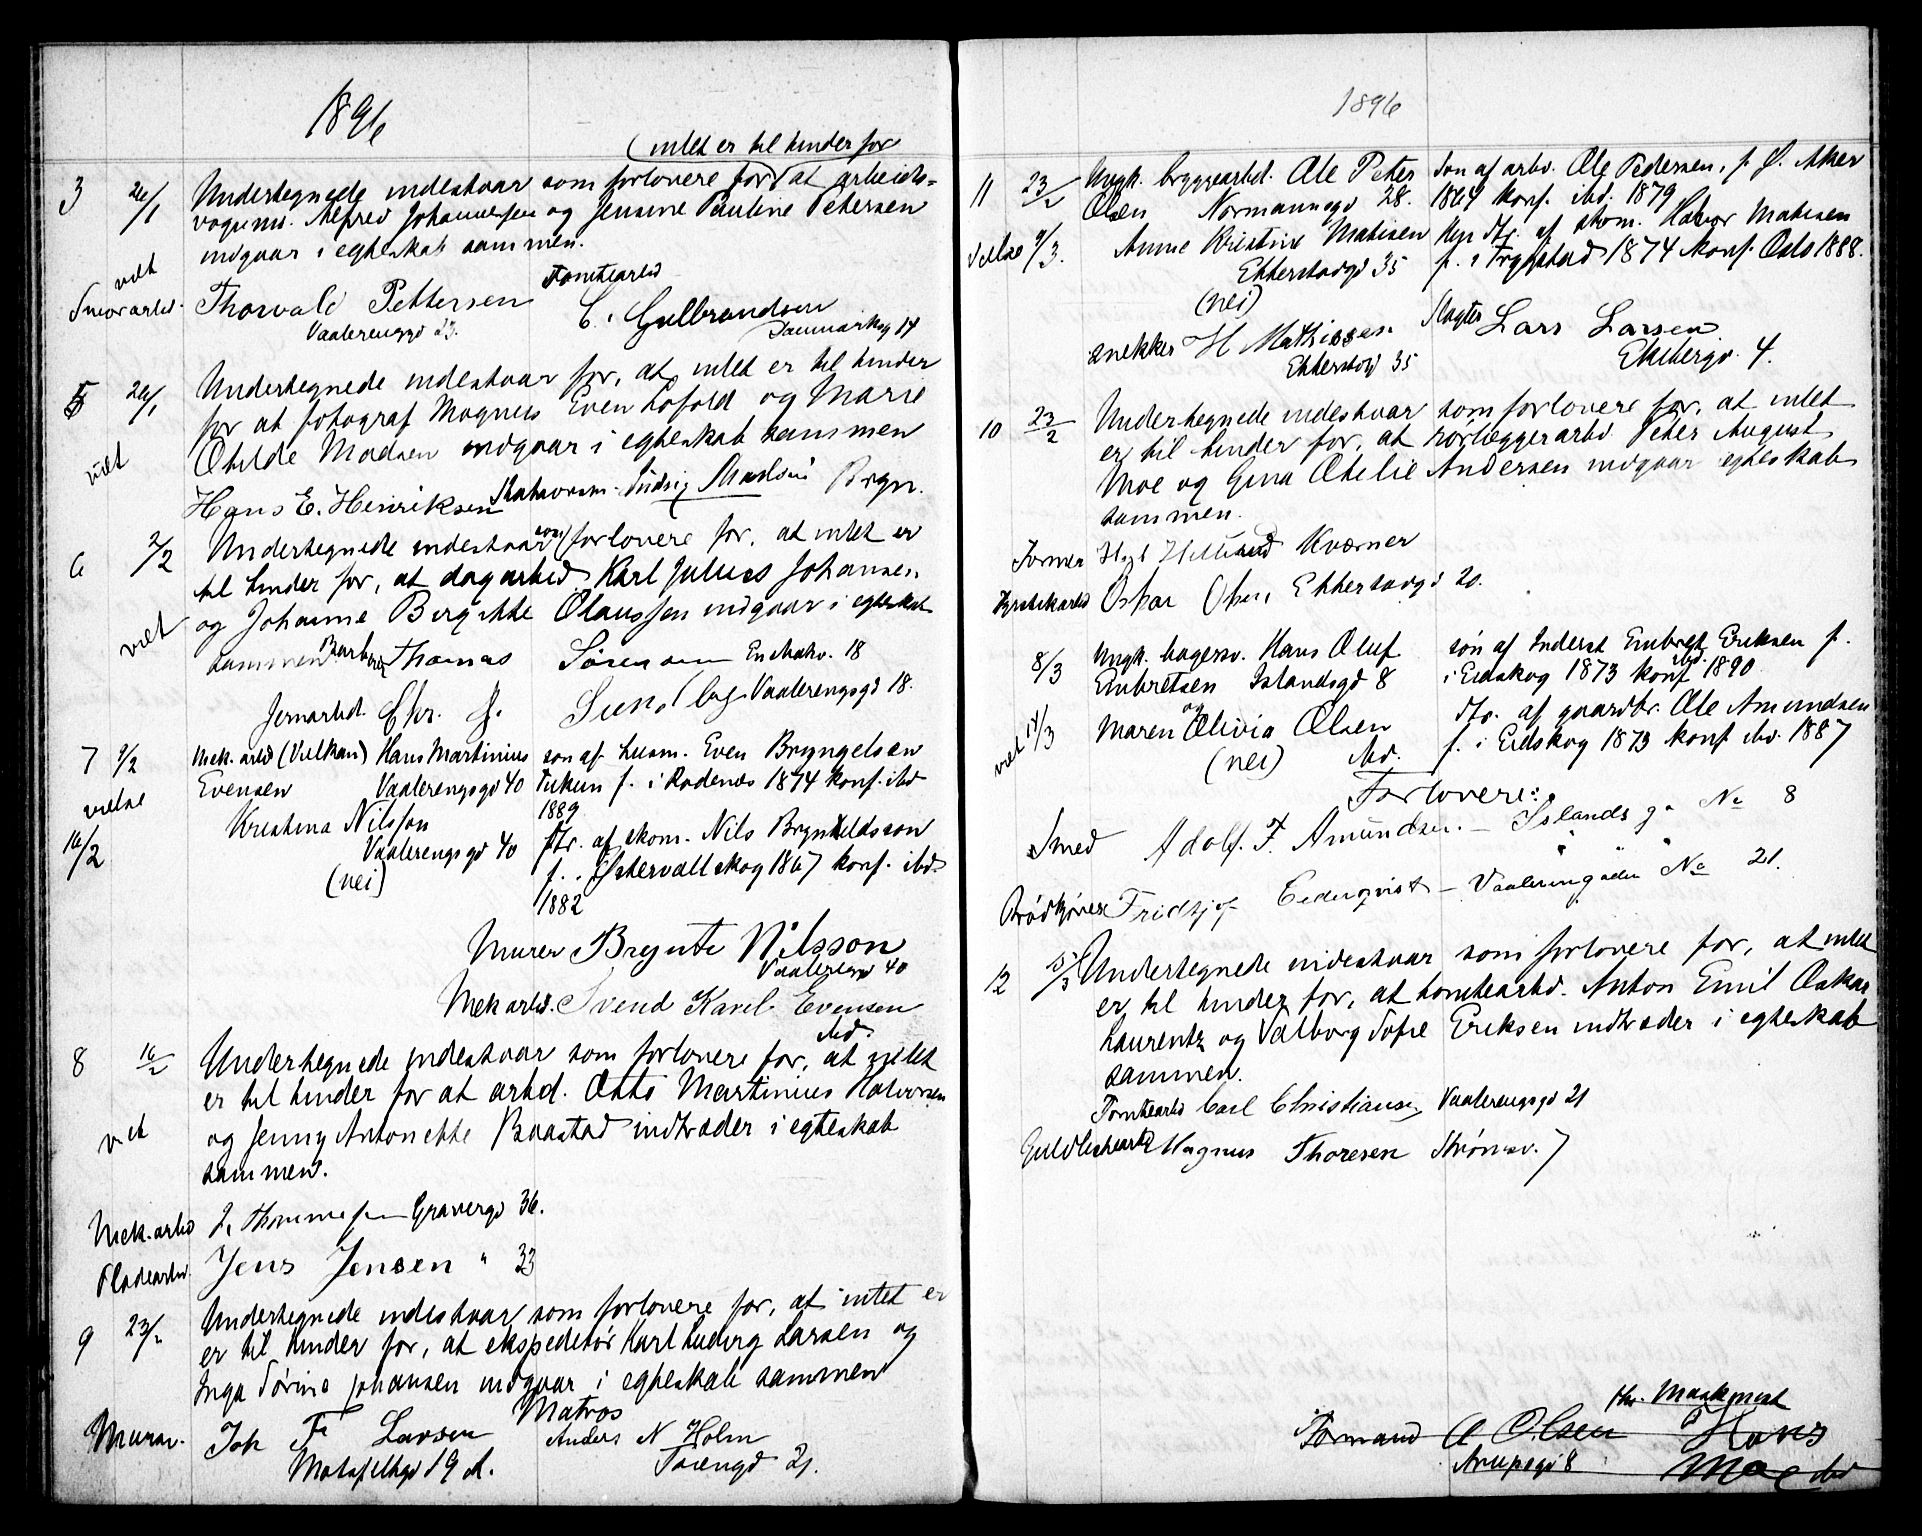 1896
(intet er til hinder for
3 26/1 Undertegnede indestaar som forlovere for at arbeids-
vognm. Alfred Johannesen og Jensine Pauline Petersen
indgaar i egteskab sammen.
viet
Smørarbd. Thorvald Pettersen Tomtearbd C. Gulbrandsen
Vaalerenggd 23. Danmarksg 14
5 26/1 Undertegnede indestaar for, at intet er til hinder
for at fotograf Magnus Even Lofold og Marie
Othilde Madsen indgaar i egteskab sammen
viet
Hans E. Henriksen Ludvig Madsen Bryn.
6 2/2 Undertegnede indestaar som forlovere for, at intet er
til hinder for, at dagarbeid. Karl Julius Johansen
og Johanne Bergitte Olaussen indgaar i egteskab
viet
sammen Barber Thomas Sørensen Enebakv. 18
Jernarbd. Chr. J. Sundby Vaalerengsgd 18.
7 9/2 Mek. arbd (Vulkan) Hans Martinius søn af husm. Even Bryngelsen
Evensen Vaalerengsgd 40 Tukun f. i Rødenes 1874 konf. ibd
vielse 1889
Kristina Nilsson dtr. af skom. Nils Brynteldsson
16/2 Vaalerengsgd 40 f. i Østervallskog 1867 konf. ibd
(nei) 1882
Murer Brynte Nilsson
Vaalerengd 40
Mek arbd. Svend Karel Evensen
ibd.
8 16/2 Undertegnede indestaar som forlovere for, at intet
er til hinder for at arbd. Otto Martinius Halvorsen
viet og Jenny Antonette Baastad indtræder i egteskab
sammen.
Mek. arbd J. Thommesen Gravergd 36.
Pladearbd. Jens Jensen " 33
9 23/2 Undertegnede indestaar som forlovere for, at intet er
er til hinder for, at ekspeditør Karl Ludvig Larsen og
Inga Sørine Johansen indgaar i egteskab sammen
Murer. Joh Fr Larsen Matros Anders N Holm
Motzfeltsgd 19 d. Sørengd 21.
1896
11 23/2 Ungk. bryggearbd. Ole Peter søn af arbd. Ole Pedersen, f. Ø. Aker
Olsen Normannsgd 28. 1864 konf. ibd. 1879
vielse 9/3. Anne Kristine Matisen Pige dtr. af skom. Halvor Matisen
Etterstadgd 35 f. i Trygstad 1874 konf. Oslo 1888.
(nei)
snekker H Mathissen Slagter Lars Larsen
Etterstadgd 35 Ekebergv. 4.
10 23/2 Undertegnede indestaar som forlovere for, at intet
er til hinder for, at rørlæggerarbd. Peter August
Moe og Gina Othelie Andersen indgaar egteskab
sammen.
Former Kværner
Fyrstikarbd Oskar Olsen Etterstadgd 20.
8/3 Ungk. bagersv. Hans Oluf søn af Inderst Embret Eriksen f.
Embretsen Islandsgd 8 i Eidskog 1873 konf ibd. 1890
og
viet 14/3 Maren Olivia Olsen dtr. af gaardbr. Ole Amundsen
(nei) ibd. f. i Eidskog 1873 konf ibd. 1887
Forlovere:
Smed Adolf. F. Amundsen. – Islands ga No 8
Brødkjører Fridtjof Cederqvist – Vaalerenggaden No 21.
12 15/3 Undertegnede indestaar som forlovere for, at intet
er til hinder for, at tomtearbd. Anton Emil Oskar
Laurentz og Valborg Sofie Eriksen indtræder i egteskab
sammen.
Tomtearbd Carl Christiansen, Vaalerengsgd 21
Guldlistearb Magnus Thoresen Strømsv. 7
Maskmest
Formand A Olsen Hans
Arupsgd 8 Moe ibd